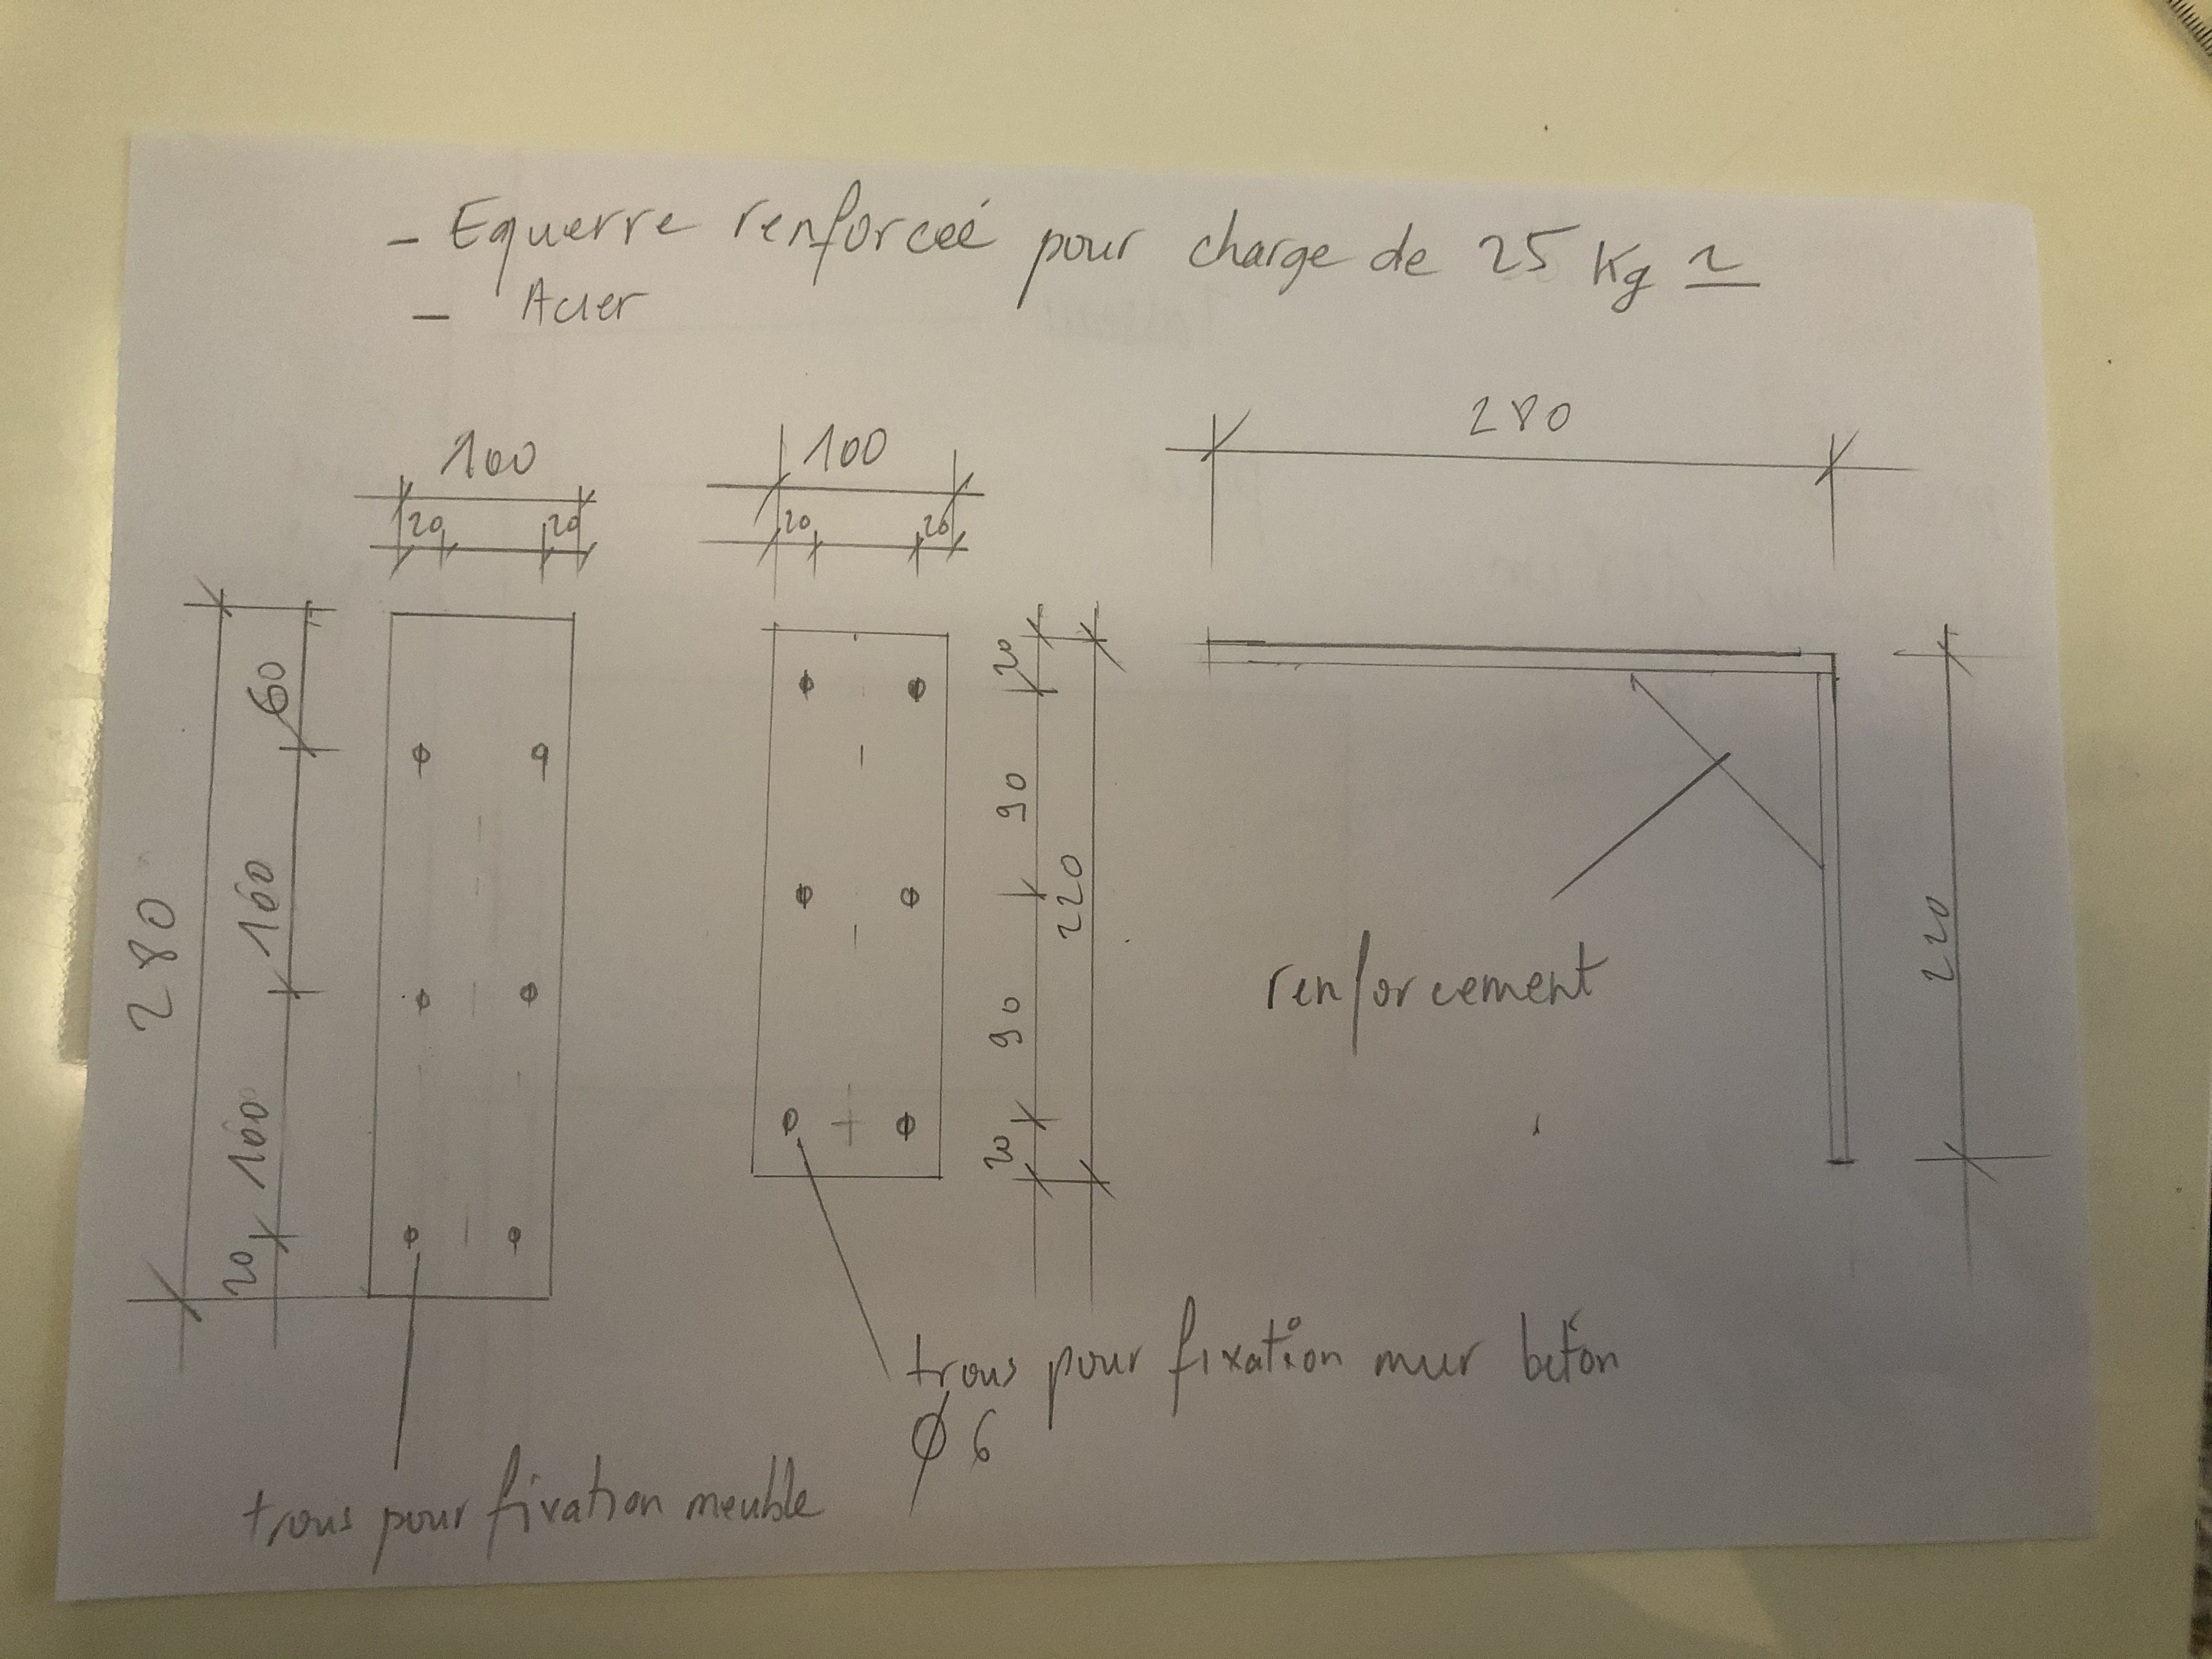 - Equerre renforceé pour charge de 25 Kg ~
- Acier
100
20 20
100
20 20
280
280
60
100
100
20
20
90
90
20
220
220
renforcement
trous pour fixation mur béton
Ø 6
trous pour fixation meuble